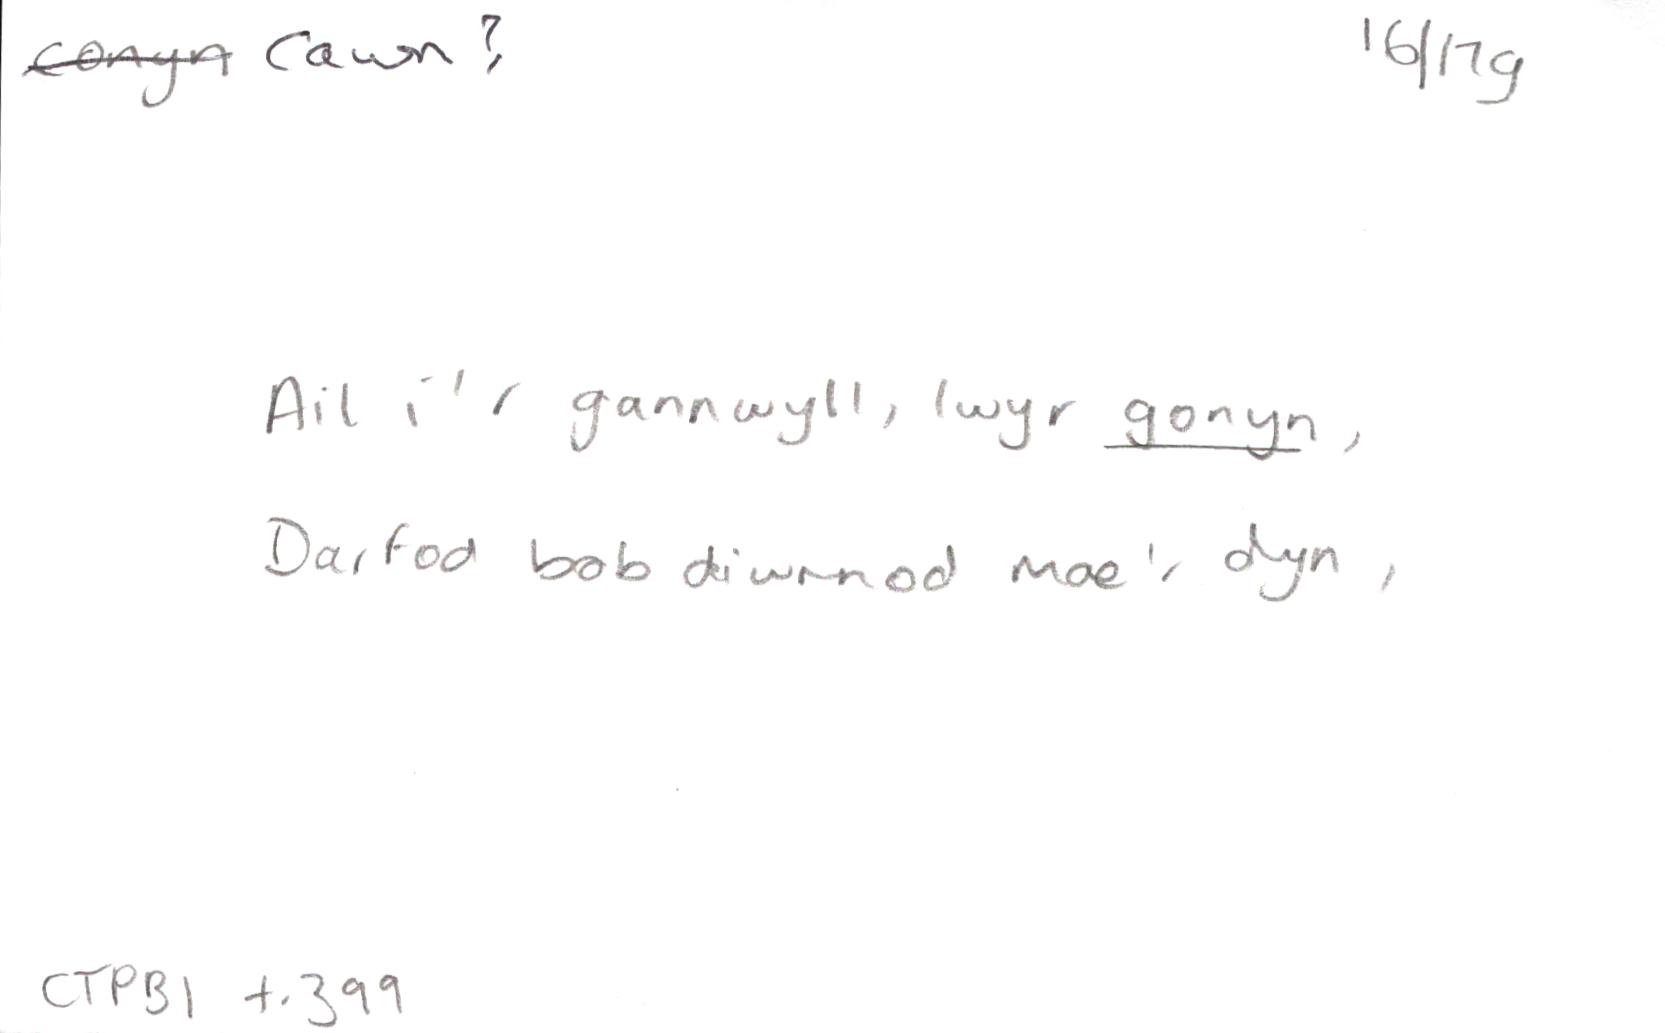 conyn Cawn? 16/17g
Ail i'r gannwyll, lwyr gonyn,
Darfod bob diwrnod mae'r dyn,
CTPB1 t.399